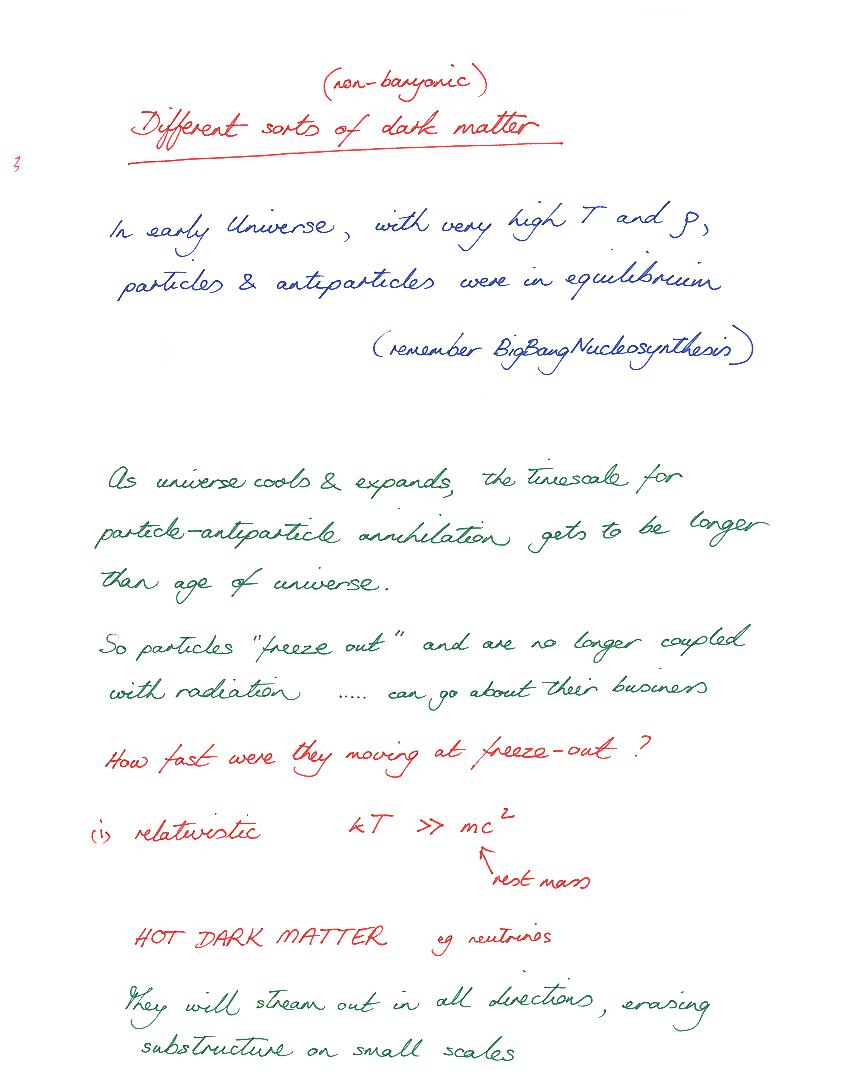 (non-baryonic)
Different sorts of dark matter
3
In early Universe, with very high T and ρ,
particles & antiparticles were in equilibrium
(remember BigBangNucleosynthesis)
As universe cools & expands, the timescale for
particle-antiparticle annihilation gets to be longer
than age of universe.
So particles "freeze out" and are no longer coupled
with radiation ..... can go about their business
How fast were they moving at freeze-out ?
(i) relativistic kT >> mc²
rest mass
HOT DARK MATTER eg neutrinos
They will stream out in all directions, erasing
substructure on small scales